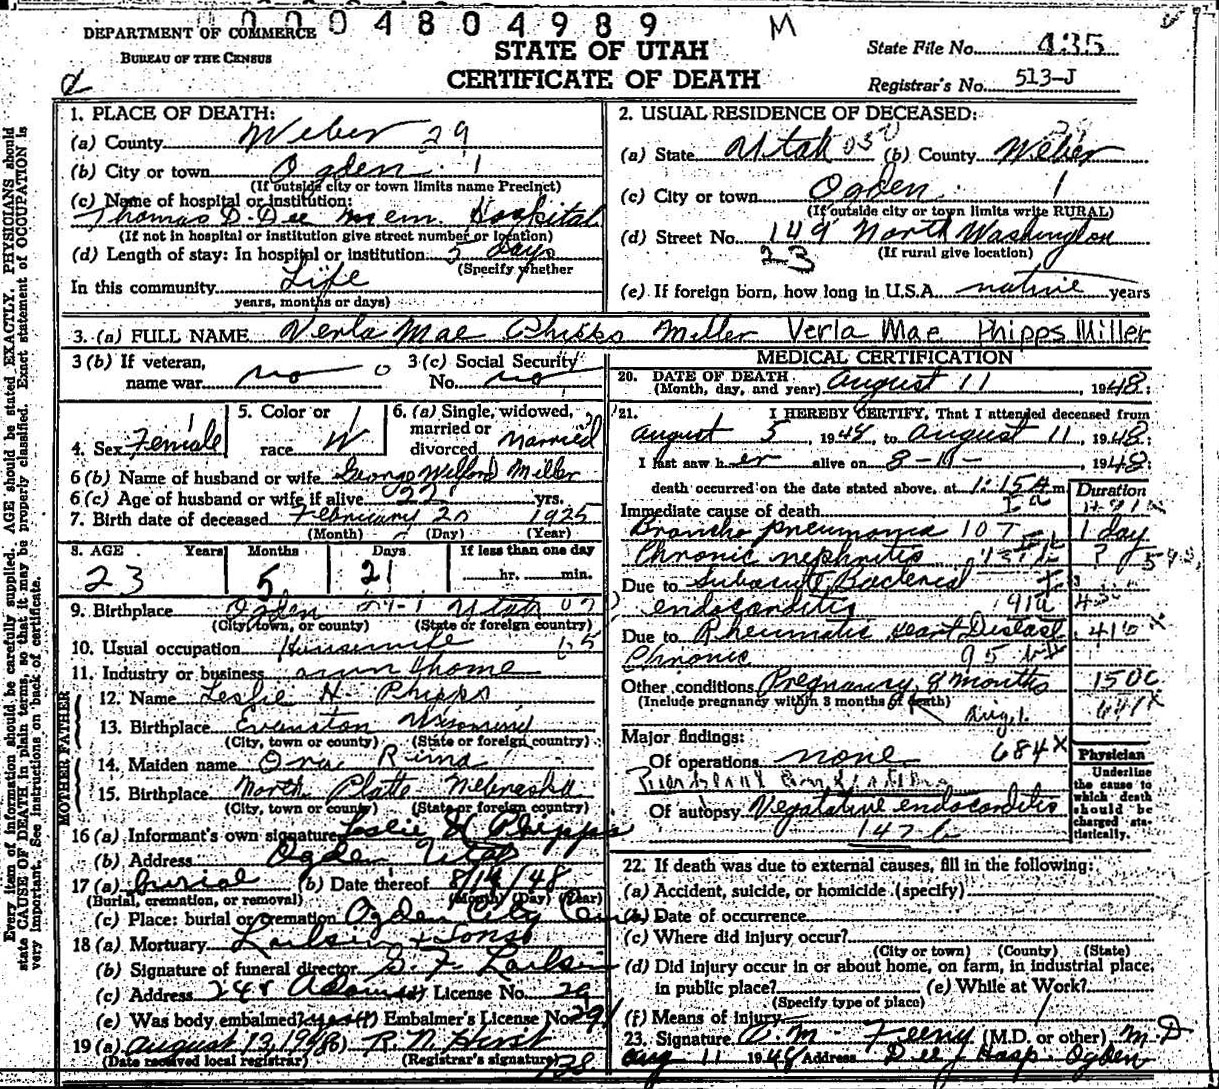 0000480 4989 M
DEPARTMENT OF COMMERCE
BUREAU OF THE CENSUS
STATE OF UTAH
CERTIFICATE OF DEATH
State File No. 435
Registrar's No. 513-J
Every item of information should be carefully supplied. AGE should be stated EXACTLY. PHYSICIANS should
state CAUSE OF DEATH in plain terms, so that it may be properly classified. Exact statement of OCCUPATION is
very important. See instructions on back of certificate.
1. PLACE OF DEATH:
(a) County Weber 29
(b) City or town Ogden 1
(If outside city or town limits name Precinct)
(c) Name of hospital or institution:
Thomas D. Dee Mem. Hospital
(If not in hospital or institution give street number or location)
(d) Length of stay: In hospital or institution 5 days
(Specify whether
In this community Life
years, months or days)
2. USUAL RESIDENCE OF DECEASED:
(a) State Utah (b) County Weber
(c) City or town Ogden 1
(If outside city or town limits write RURAL)
(d) Street No. 149 North Washington
(If rural give location)
(e) If foreign born, how long in U.S.A. native years
3. (a) FULL NAME Verla Mae Phipps Miller Verla Mae Phipps Miller
3 (b) If veteran, name war no 0
3 (c) Social Security No. no
4. Sex Female
5. Color or race W
6. (a) Single, widowed, married or divorced Married
6 (b) Name of husband or wife George Wilford Miller
6 (c) Age of husband or wife if alive 22 yrs.
7. Birth date of deceased February 20 1925
(Month) (Day) (Year)
8. AGE Years Months Days If less than one day
23 5 21 hr. min.
9. Birthplace Ogden 29-1 Utah
(City, town, or county) (State or foreign country)
10. Usual occupation Housewife
11. Industry or business own home
FATHER
12. Name Leslie H. Phipps
13. Birthplace Evanston Wyoming
(City, town or county) (State or foreign country)
MOTHER
14. Maiden name Ora
15. Birthplace North Platte Nebraska
(City, town or county) (State or foreign country)
16 (a) Informant's own signature Leslie H Phipps
(b) Address Ogden Utah
17 (a) burial (b) Date thereof 8/14/48
(Burial, cremation, or removal) (Month) (Day) (Year)
(c) Place: burial or cremation Ogden City Cem
18 (a) Mortuary Larkin & Sons
(b) Signature of funeral director G. F. Larkin
(c) Address Adams (d) License No. 29
(e) Was body embalmed? yes (f) Embalmer's License No. 291
19 (a) August 13, 1948 (b) R. N. Hirst
(Date received local registrar) (Registrar's signature)
MEDICAL CERTIFICATION
20. DATE OF DEATH
(Month, day, and year) August 11, 1948:
21. I HEREBY CERTIFY, That I attended deceased from
August 5, 1948, to August 11, 1948:
I last saw her alive on 8-11-, 1948:
death occurred on the date stated above, at 1:15 A m
Duration
Immediate cause of death
Broncho pneumonia 107 1 day
Chronic nephritis ?
Due to Subacute Bacterial
endocarditis 91a
Due to Rheumatic Heart Disease 416 x
Chronic 95
Other conditions Pregnancy 8 months 150c
(Include pregnancy within 3 months of death)
Aug. 1.
Major findings:
Of operations none 684x
Of autopsy Vegatative endocarditis
147
Physician
Underline the cause to which death should be charged statistically.
22. If death was due to external causes, fill in the following:
(a) Accident, suicide, or homicide (specify)
(b) Date of occurrence
(c) Where did injury occur?
(City or town) (County) (State)
(d) Did injury occur in or about home, on farm, in industrial place,
in public place? (e) While at Work?
(Specify type of place)
(f) Means of injury
23. Signature O. M. Feeny (M.D. or other) M.D
Aug 11 1948 Address Dee Hosp. Ogden